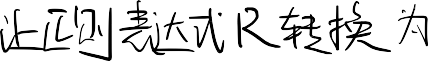 让正则表达式R转换为